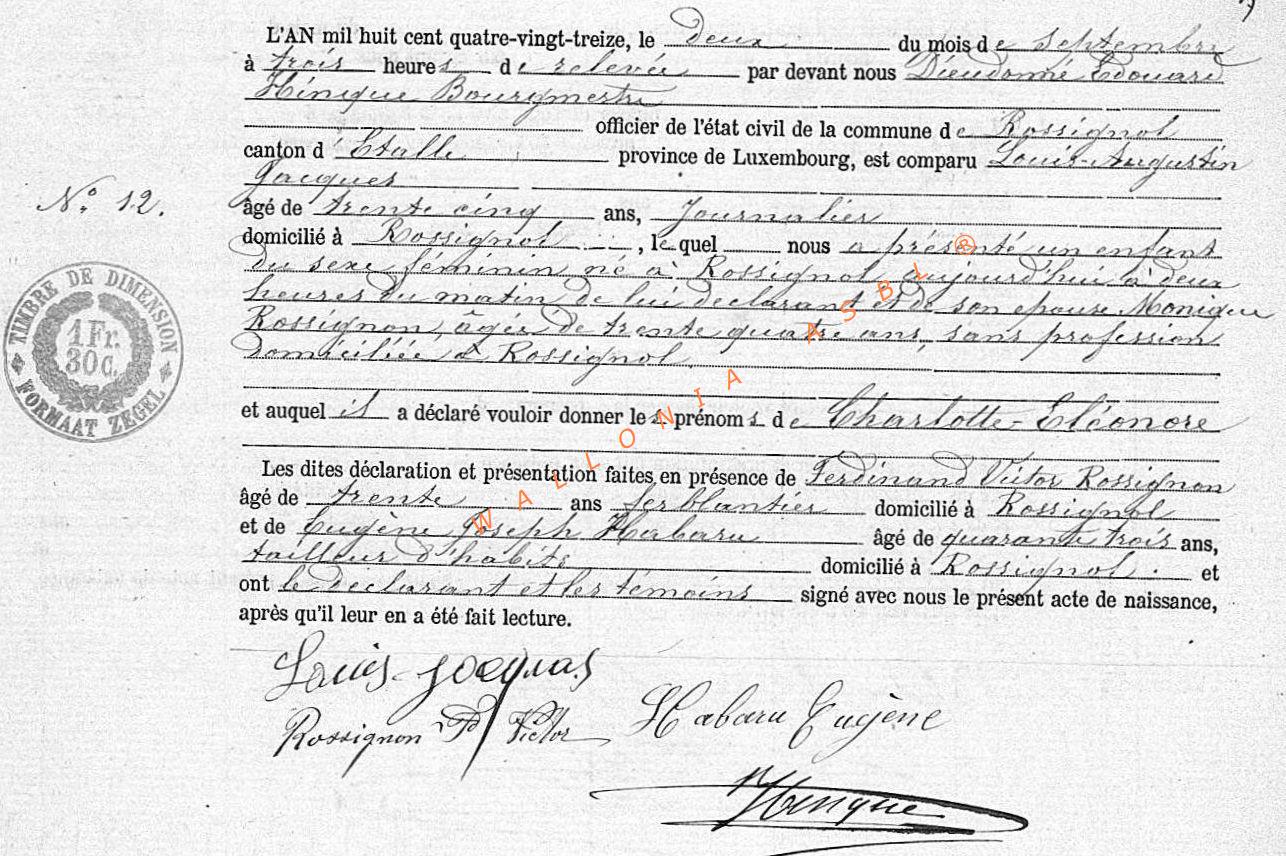 L'AN mil huit cent quatre-vingt-treize, le deux du mois de septembre
à trois heures de relevée par devant nous Dieudonné Edouard
Hinque Bourgmestre
officier de l'état civil de la commune de Rossignol
canton d'Etalle province de Luxembourg, est comparu Louis-Augustin
Jacques
âgé de trente cinq ans, Journalier
N° 12.
domicilié à Rossignol, lequel nous a présenté un enfant
du sexe féminin né à Rossignol aujourd'hui à deux
heures du matin de lui déclarant et de son épouse Monique
Rossignon, âgée de trente quatre ans, sans profession
domiciliée à Rossignol
et auquel il a déclaré vouloir donner les prénoms de Charlotte-Eléonore
Les dites déclaration et présentation faites en présence de Ferdinand Victor Rossignon
âgé de trente ans ferblantier domicilié à Rossignol
et de Eugène Joseph Habaru âgé de quarante trois ans,
tailleur d'habits domicilié à Rossignol. et
ont le déclarant et les témoins signé avec nous le présent acte de naissance,
après qu'il leur en a été fait lecture.
TIMBRE DE DIMENSION
1 Fr.
30 C.
FORMAAT ZEGEL
WALLONIA ASBL ®
Louis Jacques
Rossignon Fd Victor
Habaru Eugène
Hinque